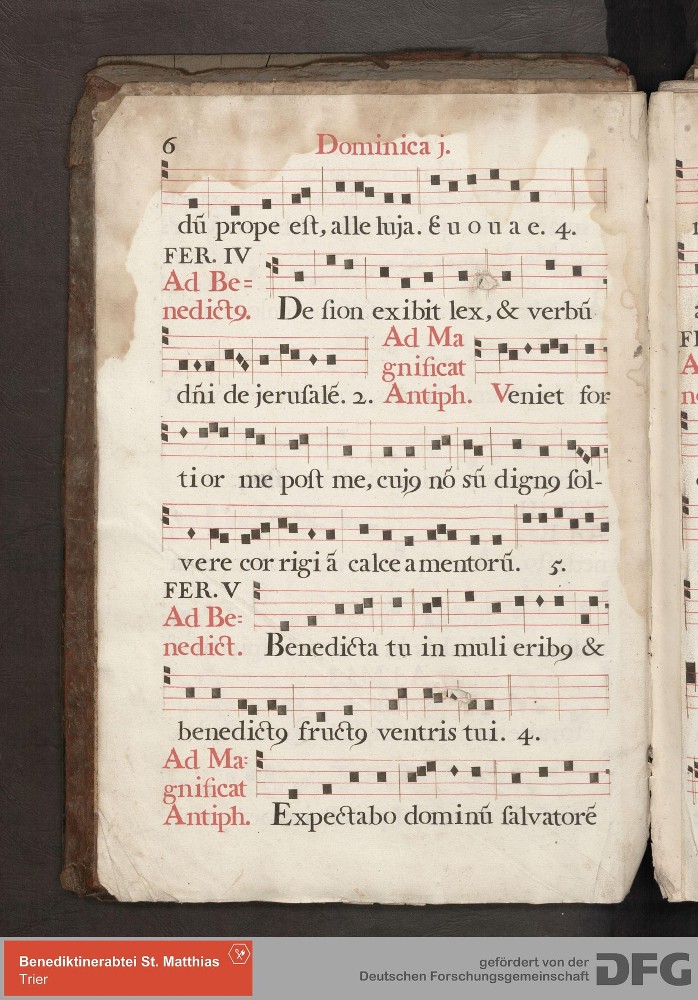 6 Dominica j.
dũ prope eſt, alle luja. E u o u a e. 4.
FER. IV
Ad Be=
nedictꝯ. De ſion exibit lex, & verbũ
dñi de jeruſalẽ. 2. Ad Ma
gnificat
Antiph. Veniet for-
tior me poſt me, cujꝯ nõ sũ dignꝯ ſol-
vere cor rigi ã calce amentorũ. 5.
FER. V
Ad Be:
nedict. Benedicta tu in muli eribꝯ &
benedictꝯ fructꝯ ventris tui. 4.
Ad Ma:
gnificat
Antiph. Expectabo dominũ ſalvatorẽ
Benediktinerabtei St. Matthias
Trier
gefördert von der
Deutschen Forschungsgemeinschaft
DFG